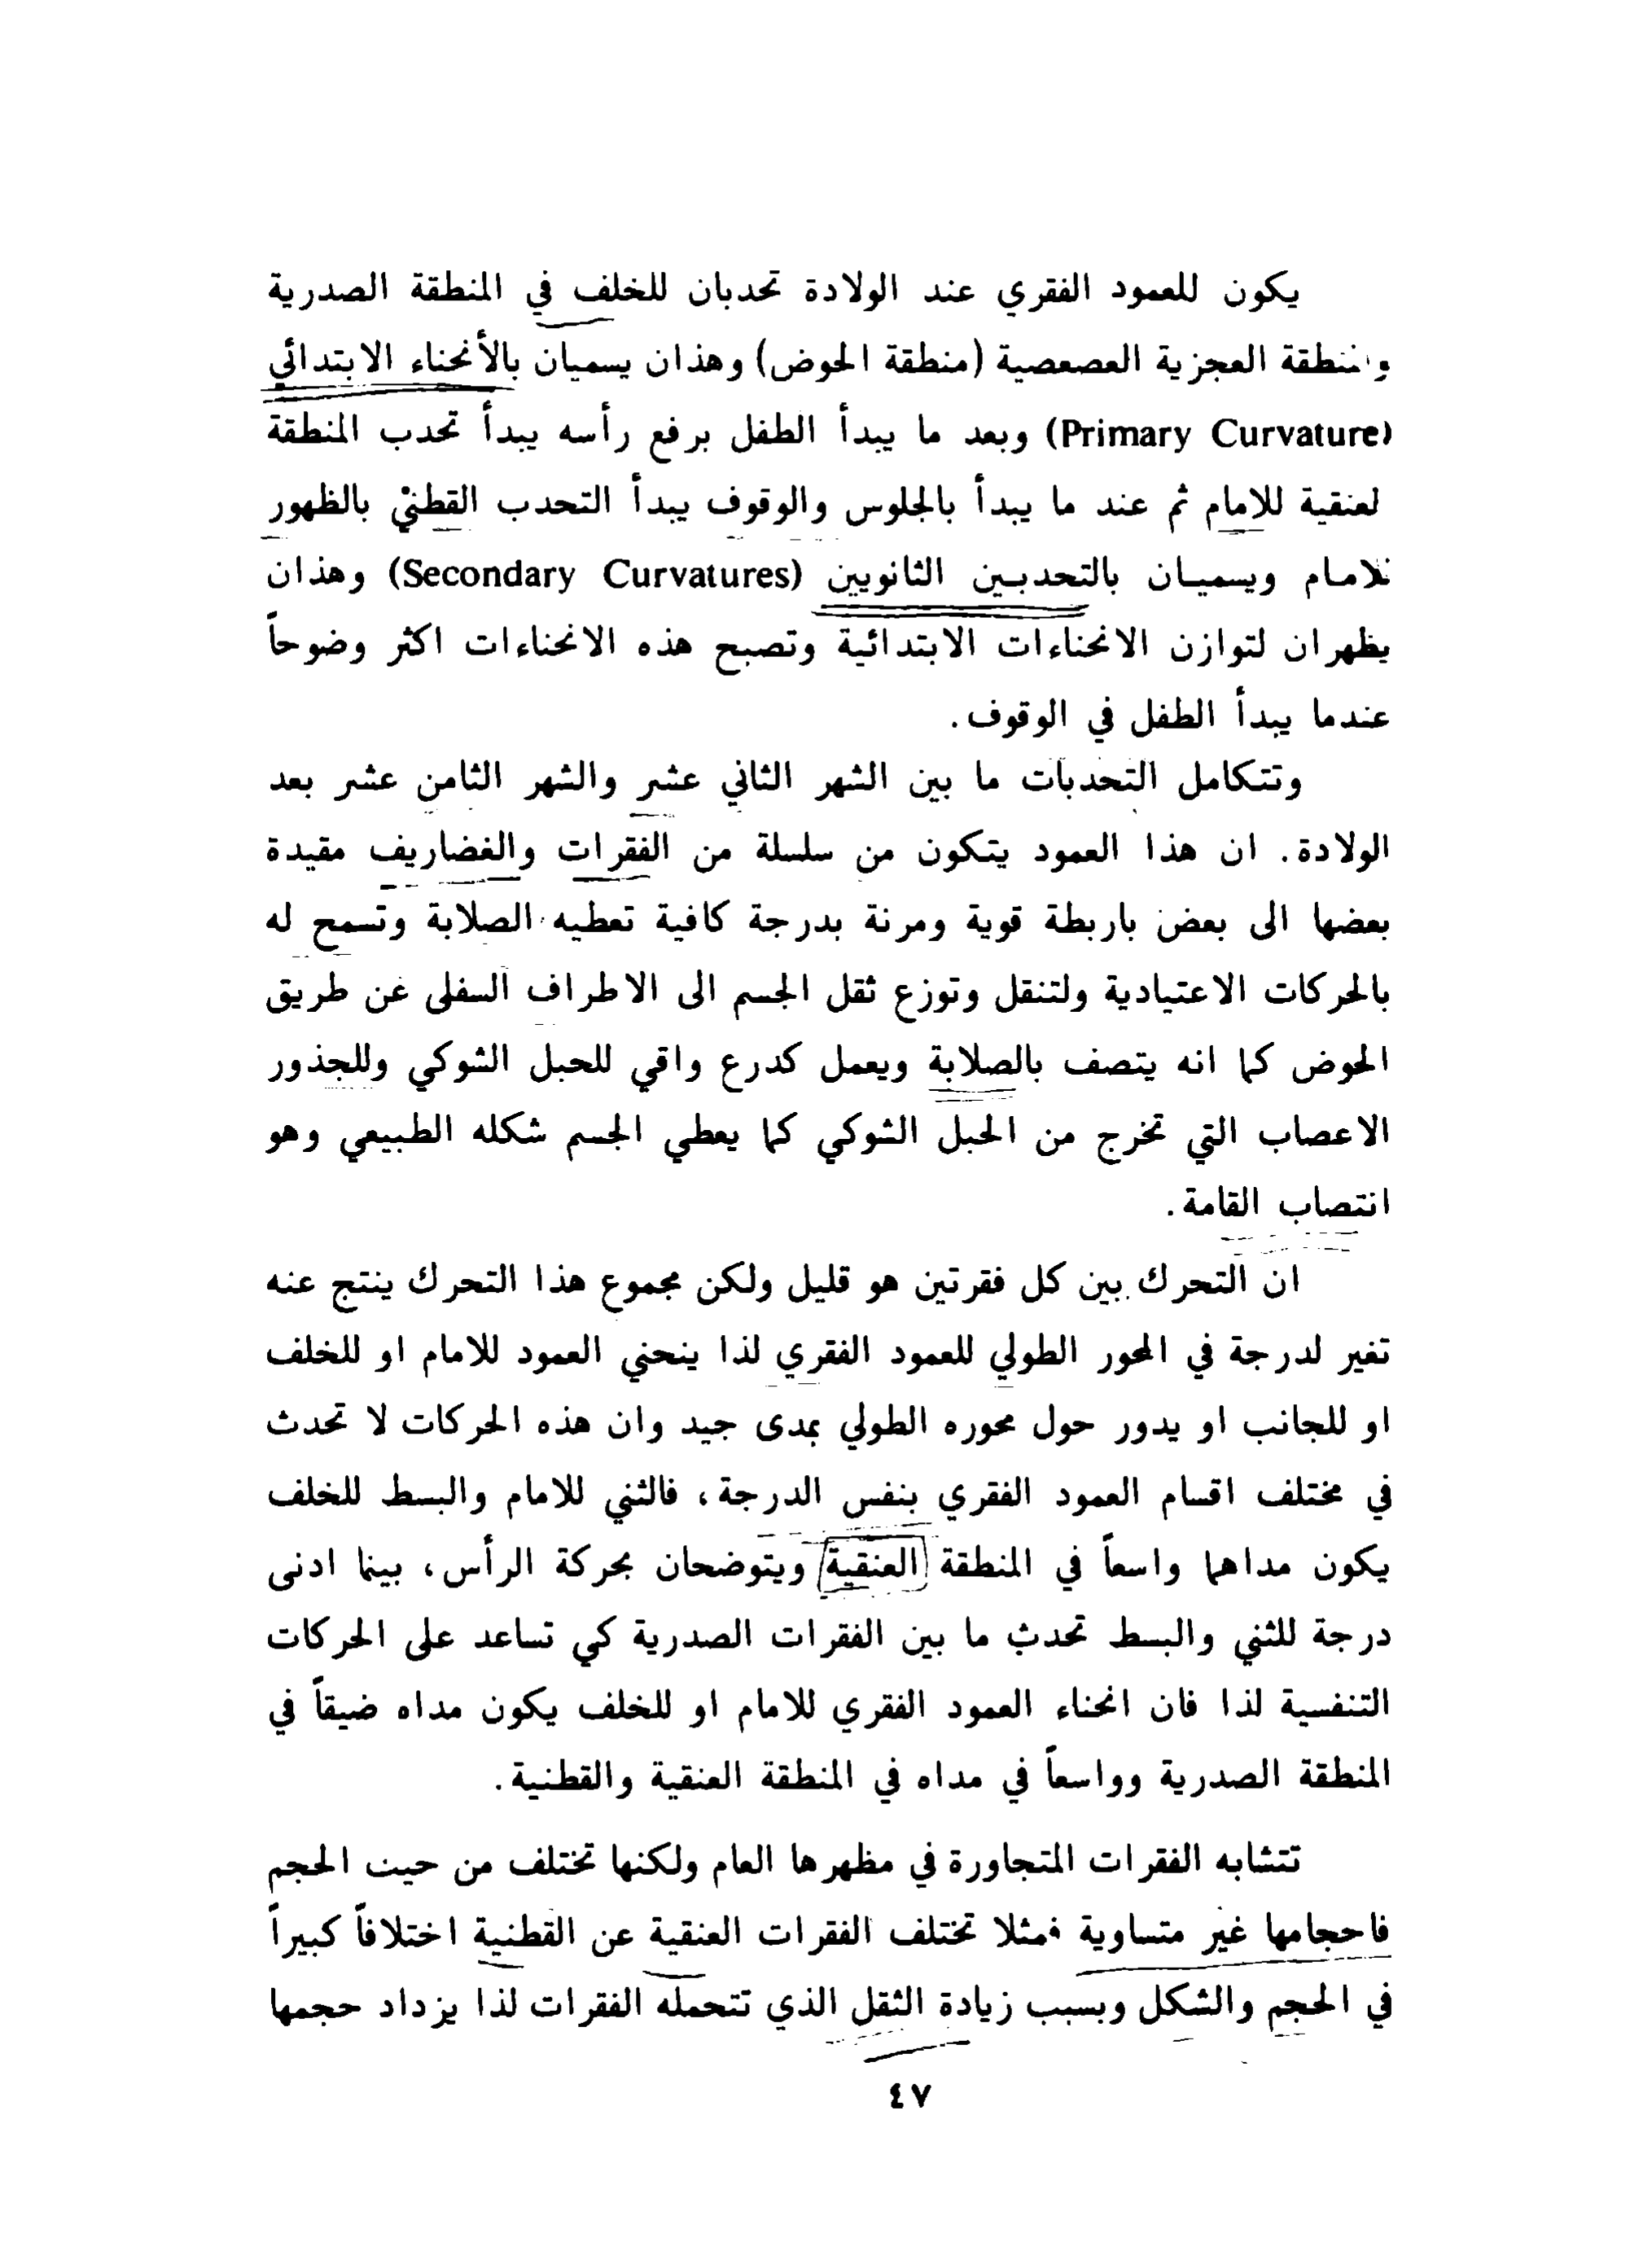 يكون للعمود الفقري عند الولادة تحدبان للخلف في المنطقة الصدرية
والمنطقة العجزية العصعصية (منطقة الحوض) وهذان يسميان بالأنحناء الابتدائي
(Primary Curvature) وبعد ما يبدأ الطفل برفع رأسه يبدأ تحدب المنطقة
لعنقية للامام ثم عند ما يبدأ بالجلوس والوقوف يبدأ التحدب القطني بالظهور
للامام ويسميان بالتحدبين الثانويين (Secondary Curvatures) وهذان
يظهران لتوازن الانحناءات الابتدائية وتصبح هذه الانحناءات اكثر وضوحاً
عندما يبدأ الطفل في الوقوف.
وتتكامل التحدبات ما بين الشهر الثاني عشر والشهر الثامن عشر بعد
الولادة. ان هذا العمود يتكون من سلسلة من الفقرات والغضاريف مقيدة
بعضها الى بعض باربطة قوية ومرنة بدرجة كافية تعطيه الصلابة وتسمح له
بالحركات الاعتيادية ولتنقل وتوزع ثقل الجسم الى الاطراف السفلى عن طريق
الحوض كما انه يتصف بالصلابة ويعمل كدرع واقي للحبل الشوكي وللجذور
الاعصاب التي تخرج من الحبل الشوكي كما يعطي الجسم شكله الطبيعي وهو
انتصاب القامة.
ان التحرك بين كل فقرتين هو قليل ولكن مجموع هذا التحرك ينتج عنه
تغير لدرجة في المحور الطولي للعمود الفقري لذا ينحني العمود للامام او للخلف
او للجانب او يدور حول محوره الطولي بمدى جيد وان هذه الحركات لا تحدث
في مختلف اقسام العمود الفقري بنفس الدرجة، فالثني للامام والبسط للخلف
يكون مداهما واسعاً في المنطقة العنقية ويتوضحان بحركة الرأس، بينما ادنى
درجة للثني والبسط تحدث ما بين الفقرات الصدرية كي تساعد على الحركات
التنفسية لذا فان انحناء العمود الفقري للامام او للخلف يكون مداه ضيقاً في
المنطقة الصدرية وواسعاً في مداه في المنطقة العنقية والقطنية.
تتشابه الفقرات المتجاورة في مظهرها العام ولكنها تختلف من حيث الحجم
فاحجامها غير متساوية فمثلا تختلف الفقرات العنقية عن القطنية اختلافاً كبيراً
في الحجم والشكل وبسبب زيادة الثقل الذي تتحمله الفقرات لذا يزداد حجمها
٤٧